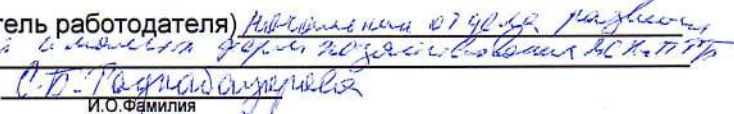 тель работодателя) Начальник отдела развития
и малых форм хозяйствования
С.Б. Гаднабазарова
И.О.Фамилия